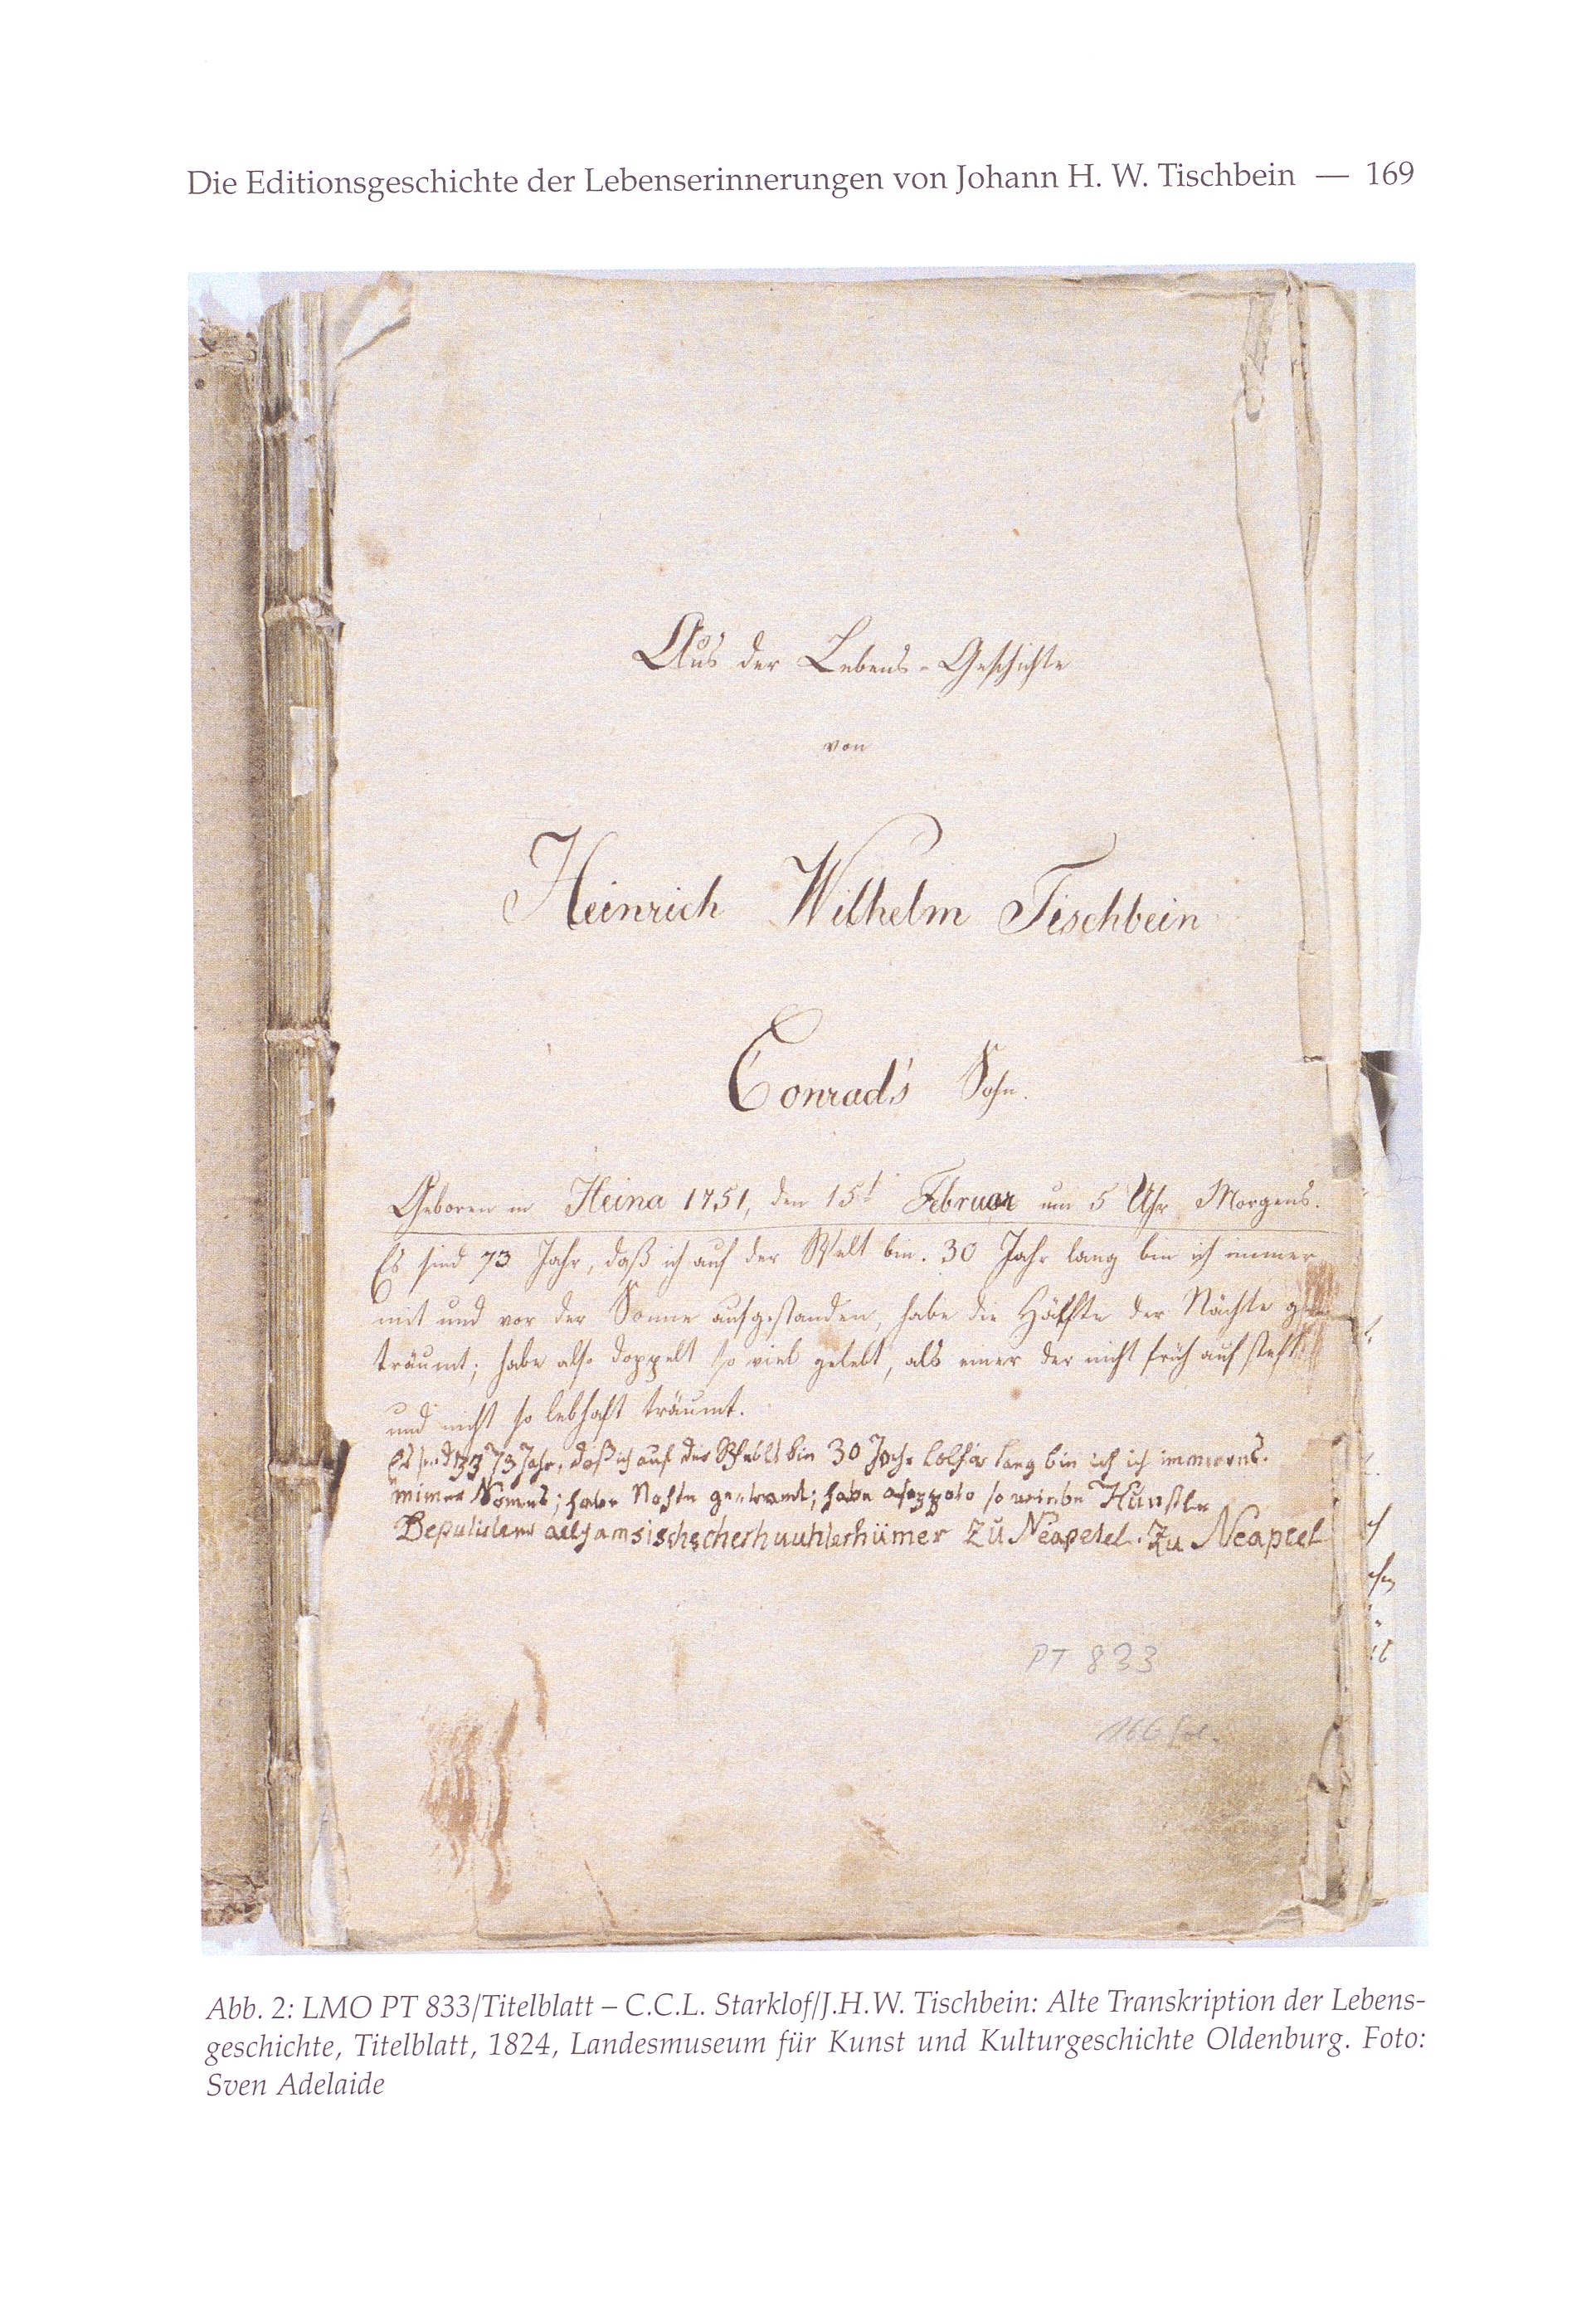 Die Editionsgeschichte der Lebenserinnerungen von Johann H. W. Tischbein — 169
Aus der Lebens-Geschichte
von
Heinrich Wilhelm Tischbein
Conrad's Sohn.
Geboren in Heina 1751, den 15t Februar um 5 Uhr Morgens.
Es sind 73 Jahr, daß ich auf der Welt bin. 30 Jahr lang bin ich immer
mit und vor der Sonne aufgestanden, habe die Hälfte der Nächte
träumt; habe also doppelt so viel gelebt, als einer der nicht früh auf steht
und nicht so lebhaft träumt.
73 Jahr, daß ich auf der bin 30 lang bin ich ich
habe so
zu Neapel
PT 833
166 fol.
Abb. 2: LMO PT 833/Titelblatt – C.C.L. Starklof/J.H.W. Tischbein: Alte Transkription der Lebens-
geschichte, Titelblatt, 1824, Landesmuseum für Kunst und Kulturgeschichte Oldenburg. Foto:
Sven Adelaide